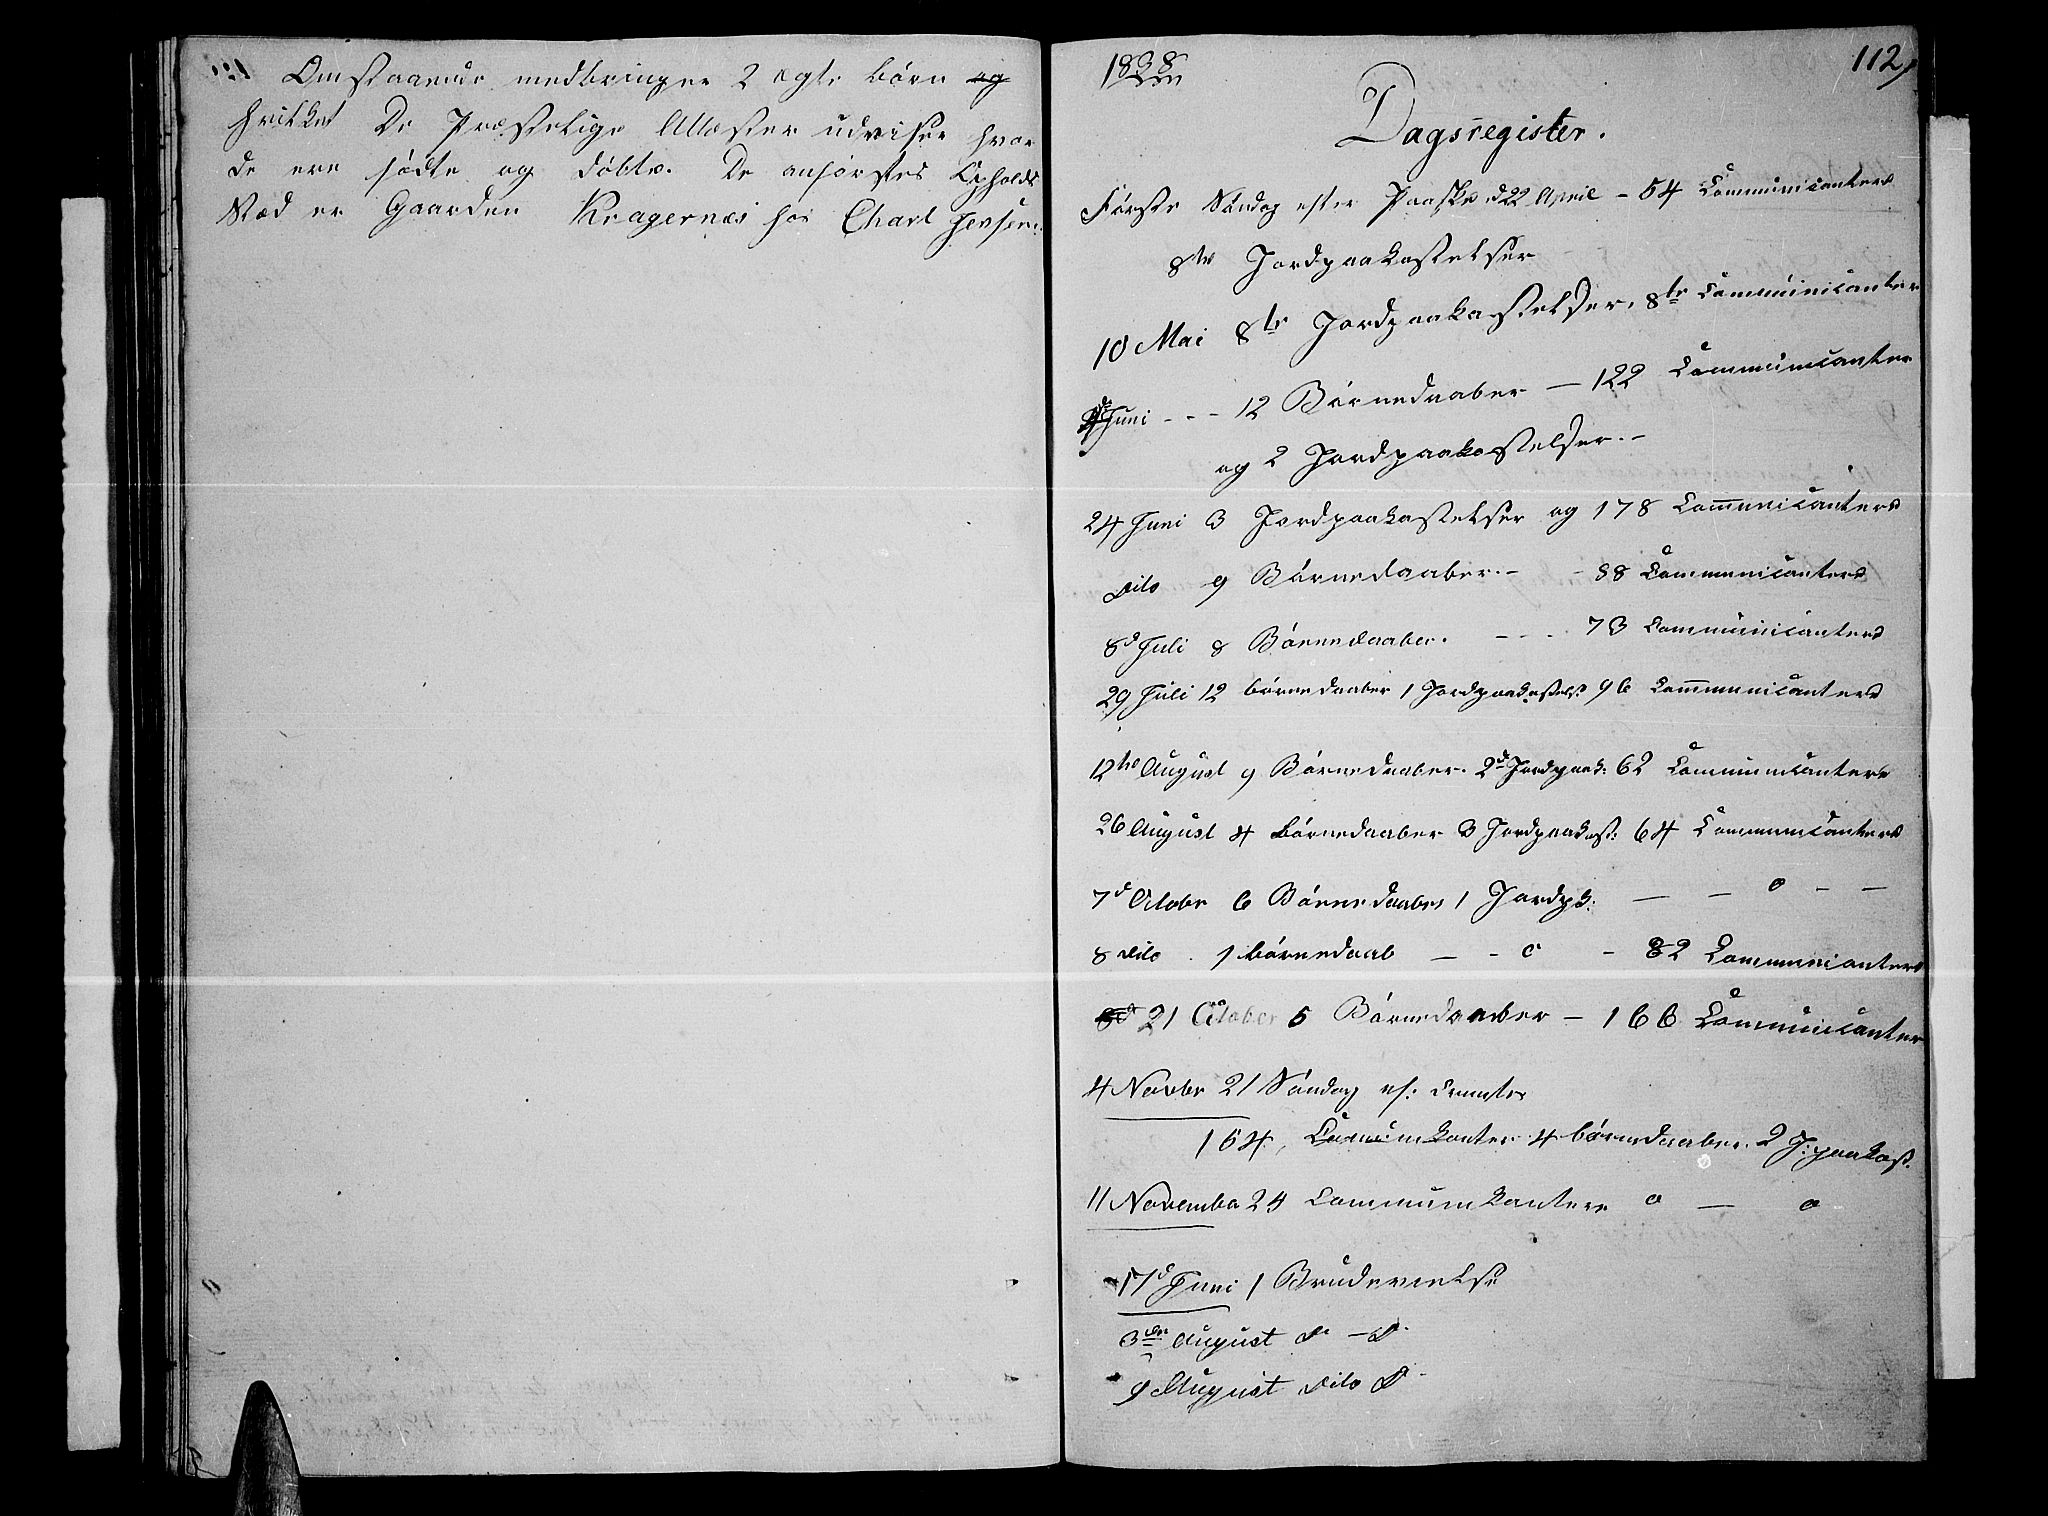 Omstaaende medbringer 2 ægte Børn og
hvilket De Præstelige Attæster udviser hvor
de ere födte og döbte. De anförstes Opholds
Stæd er Gaarden Kragernæs hos Charl Jensen.
1838
112
Dagsregister.
Förste Söndag efter Paaske d 22 April – 54 Communicantere
8te Jordpaakastelser
10 Mai 8te Jordpaakastelser, 8te Communicanter
Juni - - - 12 Börnedaaber — 122 Communicanter
og 2 Jordpaakastelser. –
24 Juni 3 Jordpaakastelser og 178 Com̄unicantere
Dito 9 Börnedaaber. – - 88 Communicantere
8d Juli 8 Börnedaaber. – - - - 73 Communicantere
29 Juli 12 börnedaaber 1 Jordpaakastelse 96 Com̄unicantere
12te August 9 Börnedaaber. 2d Jordpaak: 62 Communicantere
26 August 4 Börnedaaber 3 Jordpaakast: 64 Communicantere
7d Octobr 6 Börnedaaber 1 Jordpk: — — 0 – —
8 Dito . 1 börnedaab — - 0 – 82 Communicantere
21 October 5 Börnedaaber – 166 Communicanter
4 Novbr 21 Söndag ef: Trinitis
164, Communikanter 4 börnedaaber. 2 J:paakast.
11 Novembr 24 Communikantere 0 — 0
17d Juni 1 Brudevielse
3die August D. – D.
9 August Dito D.